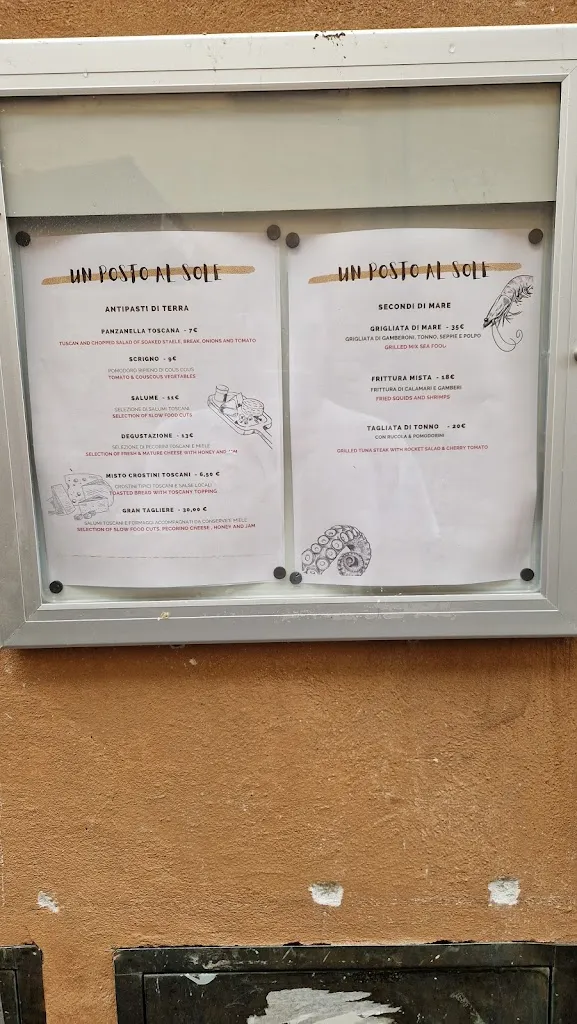 UN POSTO AL SOLE
ANTIPASTI DI TERRA
PANZANELLA TOSCANA - 7€
TUSCAN AND CHOPPED SALAD OF SOAKED STAELE, BREAK, ONIONS AND TOMATO
SCRIGNO - 9€
POMODORO RIPIENO DI COUS COUS
TOMATO & COUSCOUS VEGETABLES
SALUME - 11€
SELEZIONE DI SALUMI TOSCANI
SELECTION OF SLOW FOOD CUTS
DEGUSTAZIONE - 13€
SELEZIONE DI PECORINO TOSCANI E MIELE
SELECTION OF FRESH & MATURE CHEESE WITH HONEY AND JAM
MISTO CROSTINI TOSCANI - 6,50 €
CROSTINI TIPICI TOSCANI E SALSE LOCALI
TOASTED BREAD WITH TOSCANY TOPPING
GRAN TAGLIERE - 30,00 €
SALUMI TOSCANI E FORMAGGI ACCOMPAGNATI DA CONSERVE E MIELE
SELECTION OF SLOW FOOD CUTS, PECORINO CHEESE , HONEY AND JAM
UN POSTO AL SOLE
SECONDI DI MARE
GRIGLIATA DI MARE - 35€
GRIGLIATA DI GAMBERONI, TONNO, SEPPIE E POLPO
GRILLED MIX SEA FOOD
FRITTURA MISTA - 18€
FRITTURA DI CALAMARI E GAMBERI
FRIED SQUIDS AND SHRIMPS
TAGLIATA DI TONNO - 20€
CON RUCOLA & POMODORINI
GRILLED TUNA STEAK WITH ROCKET SALAD & CHERRY TOMATO